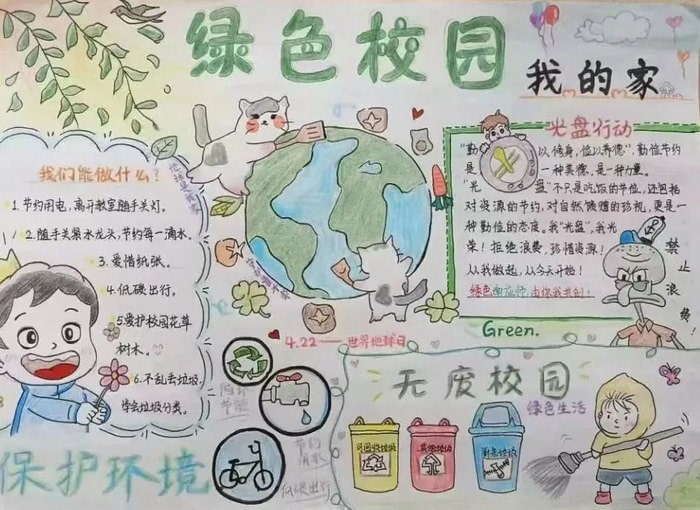 绿色校园
我的家
我们能做什么？
1.节约用电，离开教室随手关灯。
2.随手关紧水龙头，节约每一滴水。
3.爱惜纸张。
4.低碳出行。
5.爱护校园花草
树木。
6.不乱丢垃圾，
垃圾分类。
光盘行动
"勤 以修身，俭以养德"，勤俭节约
是 一种美德，是一种力量。
"光 盘"不只是吃饭的节俭，还包括
对资源的节约，对自然馈赠的珍视，更是一
种勤俭的态度。我"光盘"，我光
荣！拒绝浪费，珍惜资源！
从我做起，从今天开始！
禁止浪费
Green.
4.22——世界地球日
无废校园
绿色生活
可回收垃圾
其他垃圾
厨余垃圾
节约
滴水
低碳出行
保护环境